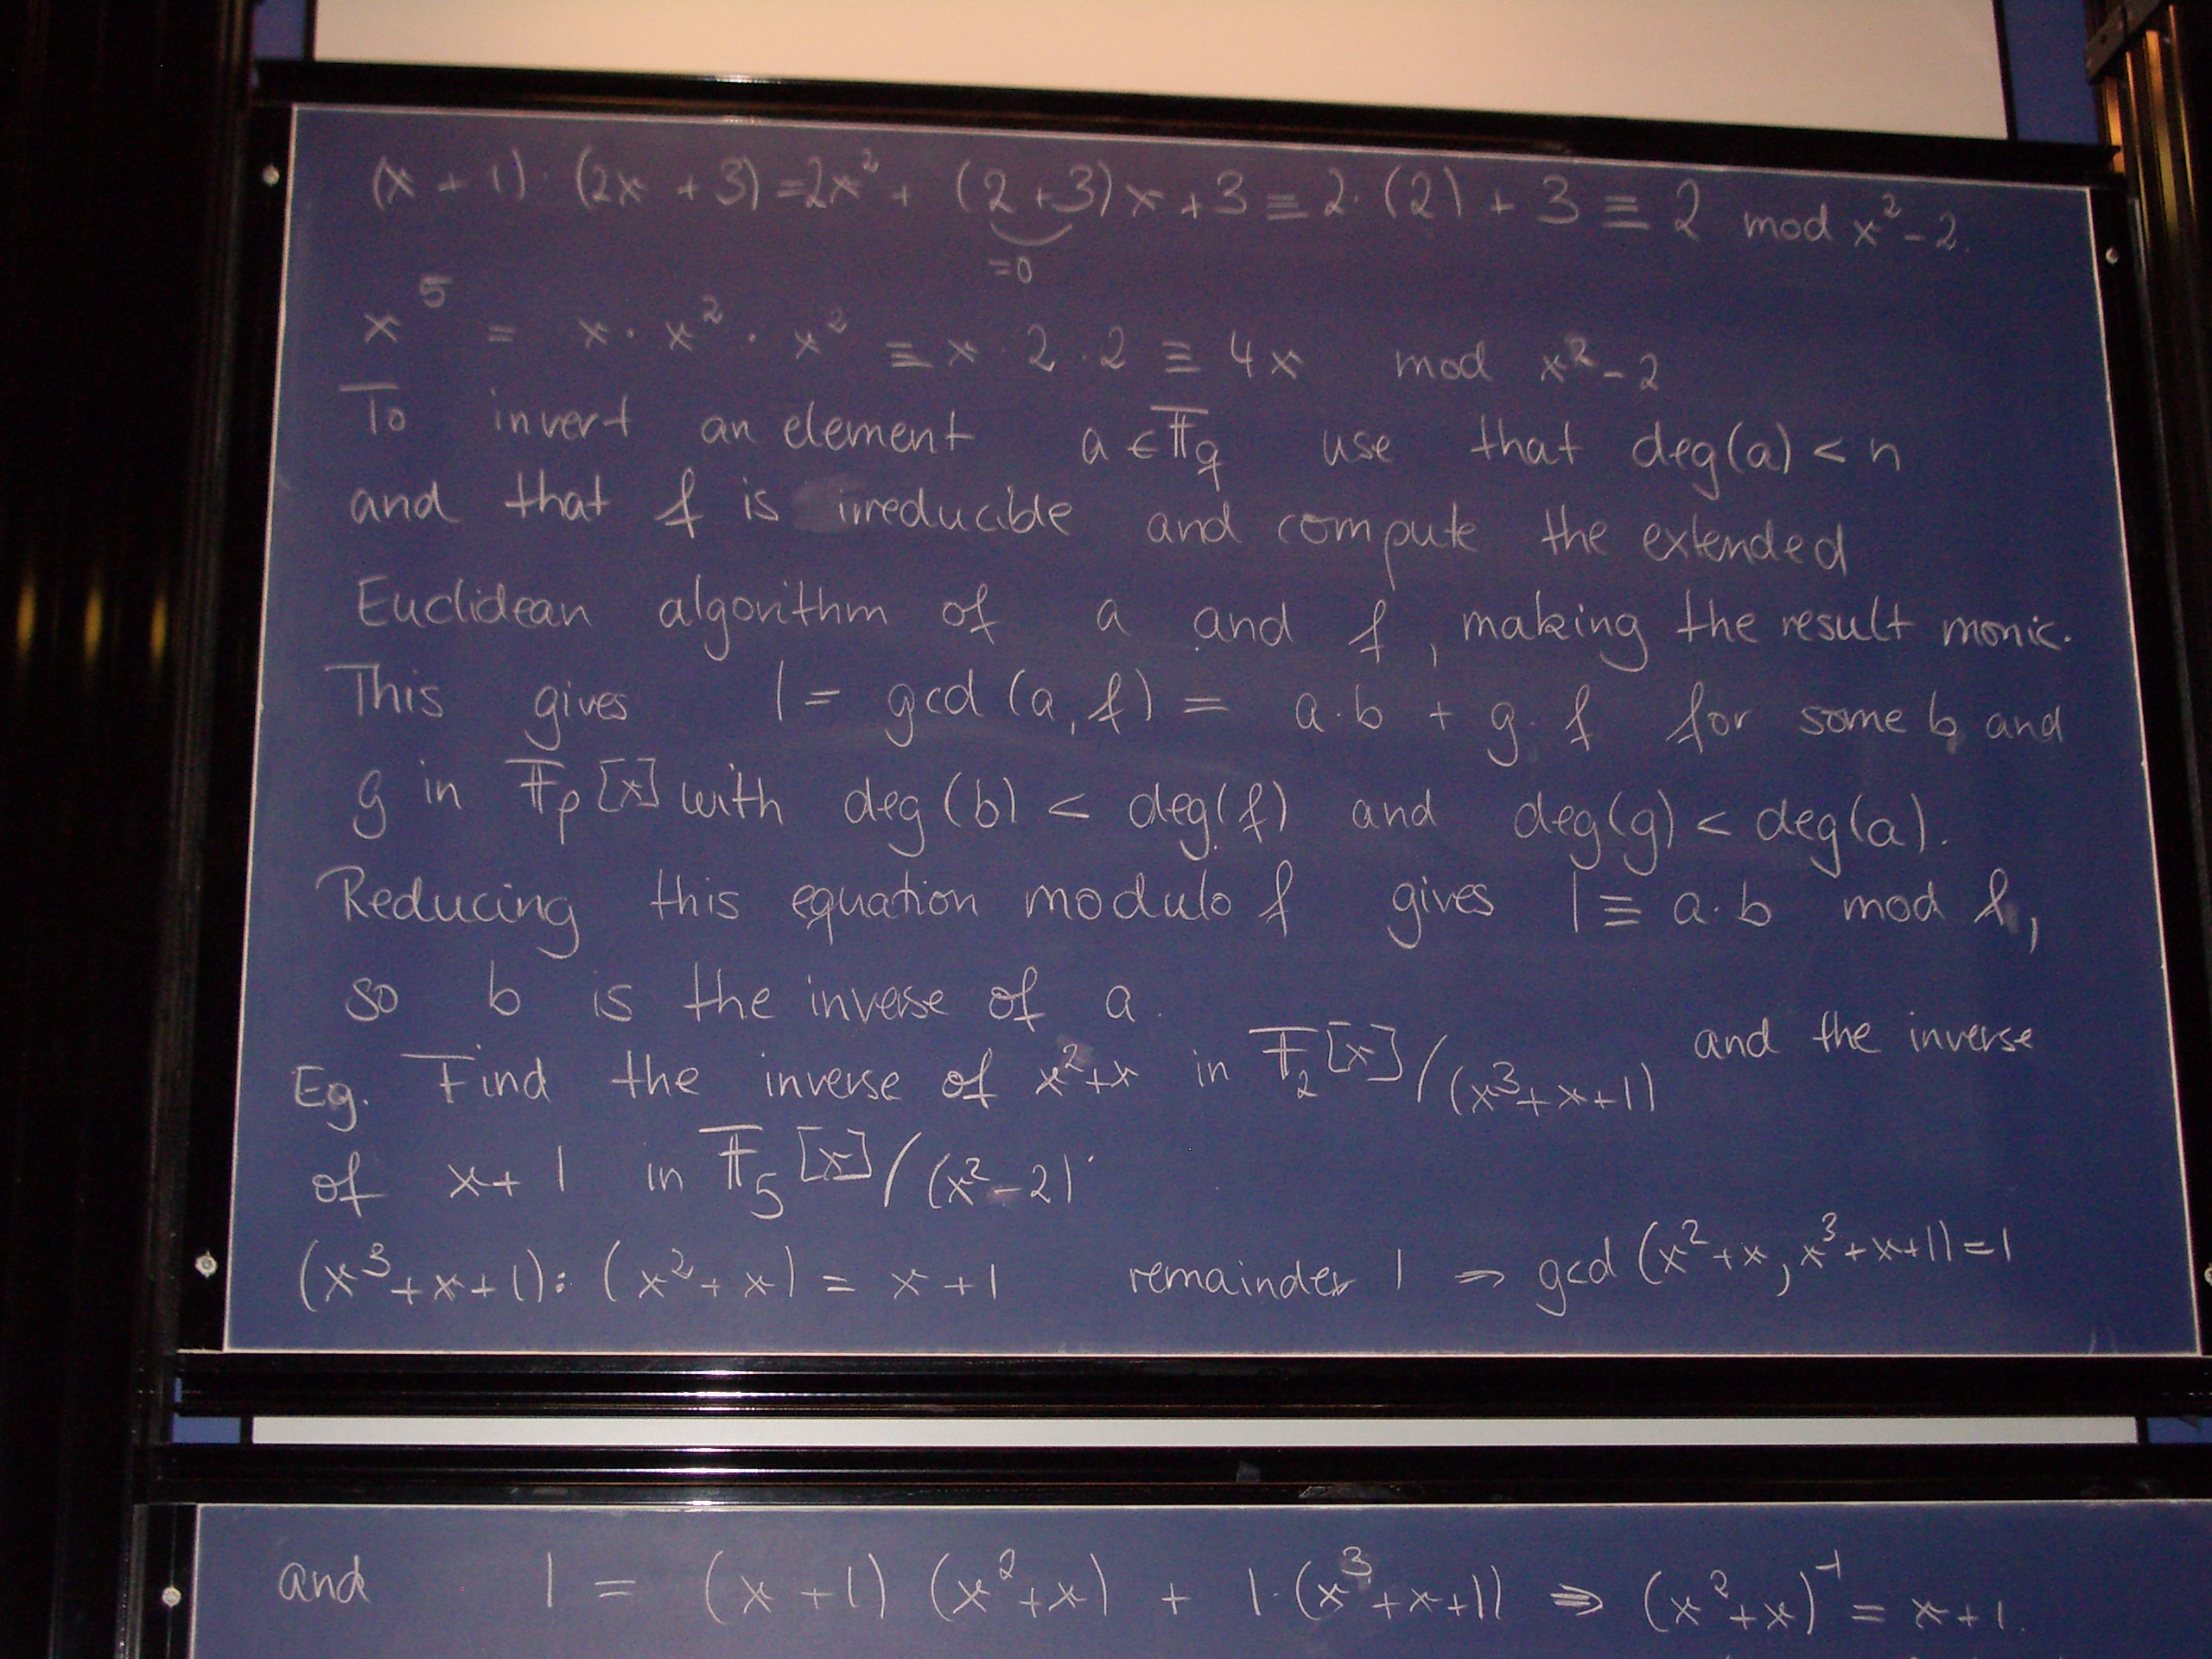 (x + 1) · (2x + 3) = 2x² + (2 + 3) x + 3 ≡ 2 · (2) + 3 ≡ 2 mod x² - 2.
= 0
x⁵ = x · x² · x² ≡ x · 2 · 2 ≡ 4x mod x² - 2
To invert an element a ∈ 𝔽_q use that deg(a) < n
and that f is irreducible and compute the extended
Euclidean algorithm of a and f, making the result monic.
This gives 1 = gcd (a, f) = a · b + g · f for some b and
g in 𝔽_p [x] with deg (b) < deg(f) and deg(g) < deg(a).
Reducing this equation modulo f gives 1 ≡ a · b mod f,
so b is the inverse of a.
Eg. Find the inverse of x² + x in 𝔽₂[x]/(x³ + x + 1) and the inverse
of x + 1 in 𝔽₅[x]/(x² - 2).
(x³ + x + 1) : (x² + x) = x + 1 remainder 1 ⇒ gcd (x² + x, x³ + x + 1) = 1
and 1 = (x + 1) (x² + x) + 1 · (x³ + x + 1) ⇒ (x² + x)⁻¹ = x + 1.